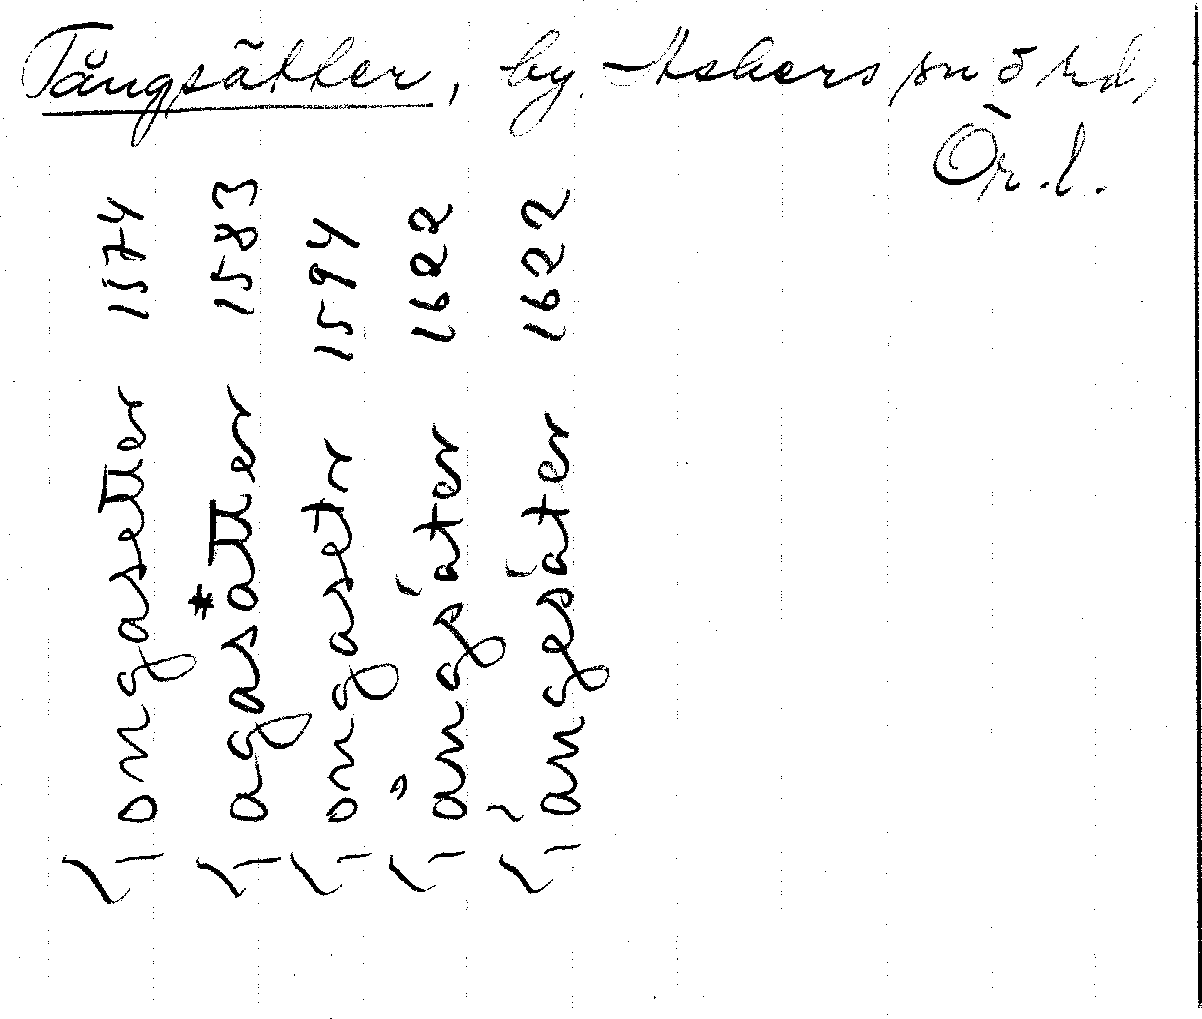 Tångsätter, by Askers sn ö hd,
Ör. l.
Tongasetter 1574
Tagasätter 1583
Tongasetr 1594
Tångsäter 1622
Tångesäter 1622